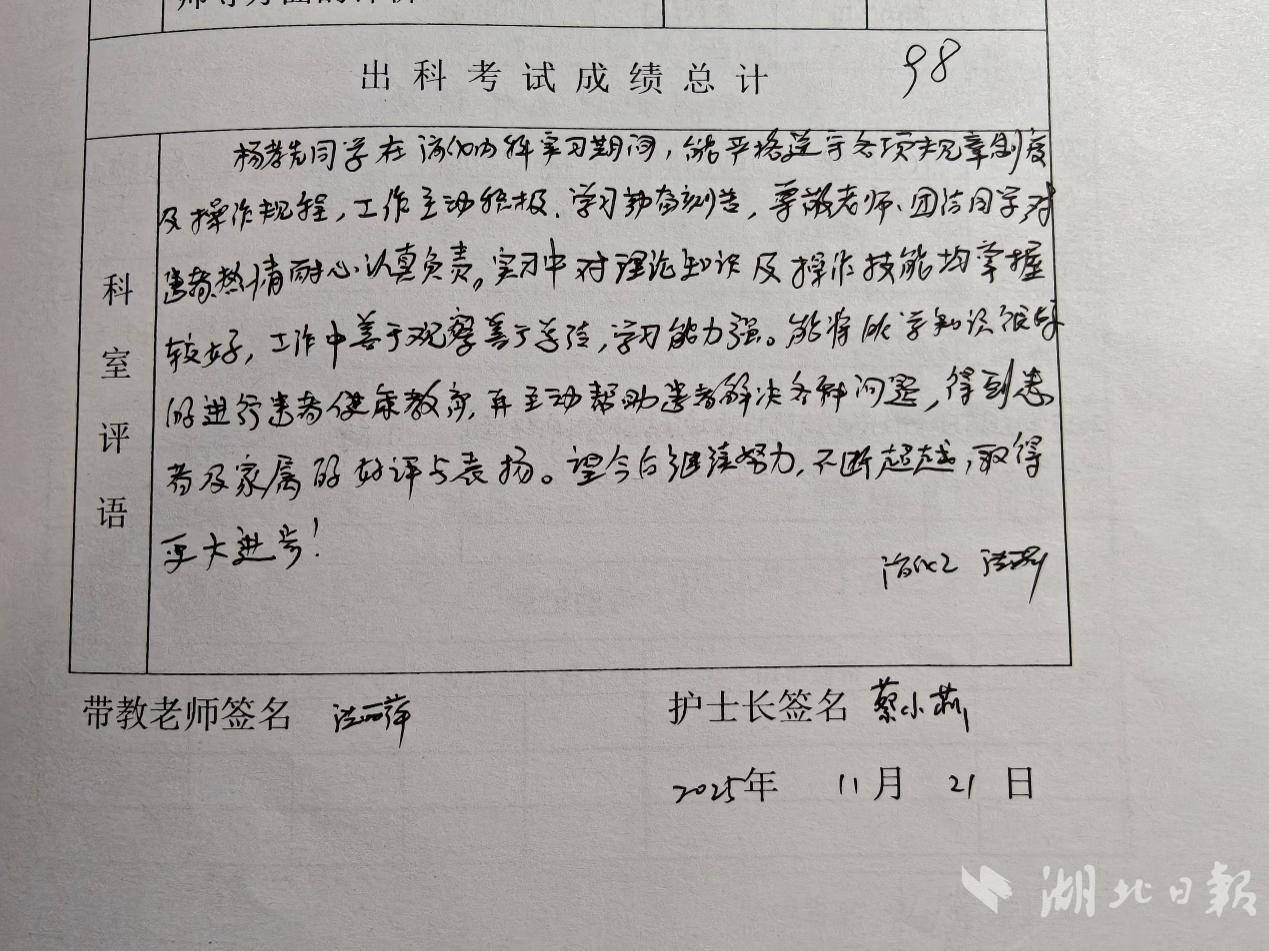 出科考试成绩总计 98
科室评语
杨孝先同学在消化内科实习期间，能严格遵守各项规章制度
及操作规程，工作主动积极、学习勤奋刻苦，尊敬老师、团结同学对
患者热情耐心、认真负责。实习中对理论知识及操作技能均掌握
较好，工作中善于观察善于总结，学习能力强。能将所学知识很好
的进行患者健康教育，并主动帮助患者解决各种问题，得到患
者及家属的好评与表扬。望今后继续努力，不断超越，取得
更大进步！
消化2
带教老师签名
护士长签名 蔡小莉
2025年 11月 21日
湖北日报